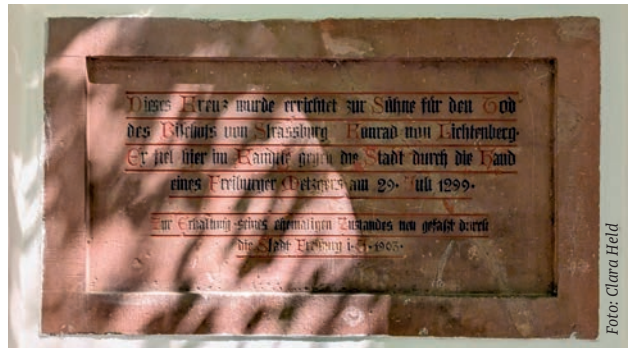 Dieses Kreuz wurde errichtet zur Sühne für den Tod
des Bischofs von Strassburg Konrad von Lichtenberg.
Er fiel hier im Kampfe gegen die Stadt durch die Hand
eines Freiburger Metzgers am 29. Juli 1299.
Zur Erhaltung seines ehemaligen Zustandes neu gefaßt durch
die Stadt Freiburg i. B. 1903.
Foto: Clara Held